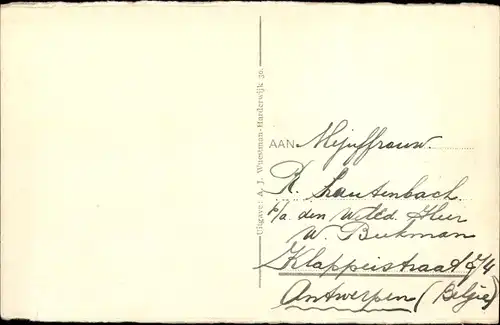 Uitgave: A. J. Wuestman-Harderwijk 30.
AAN Mejuffrouw.
R. Lautenbach
p/a. den WelEd. Heer
W. Beekman
Klappeistraat
Antwerpen (Belgie)